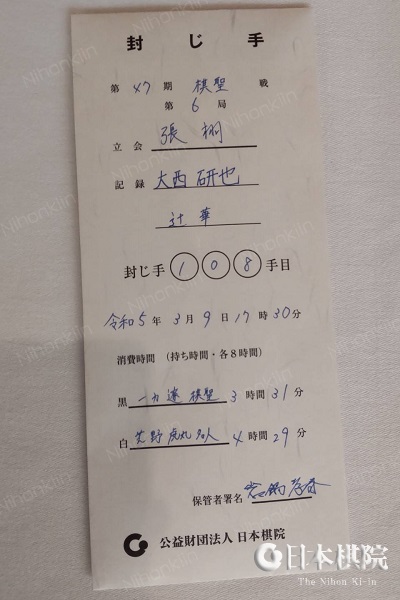 封じ手
第 47 期 棋聖 戦
第 6 局
立会 張 栩
記録 大西 研也
辻 華
封じ手 1 0 8 手目
令和5年 3月 9日 17時30分
消費時間 (持ち時間・各8時間)
黒 一力 遼 棋聖 3時間31分
白 芝野 虎丸 名人 4時間29分
保管者署名
公益財団法人 日本棋院
日本棋院
The Nihon Ki-in